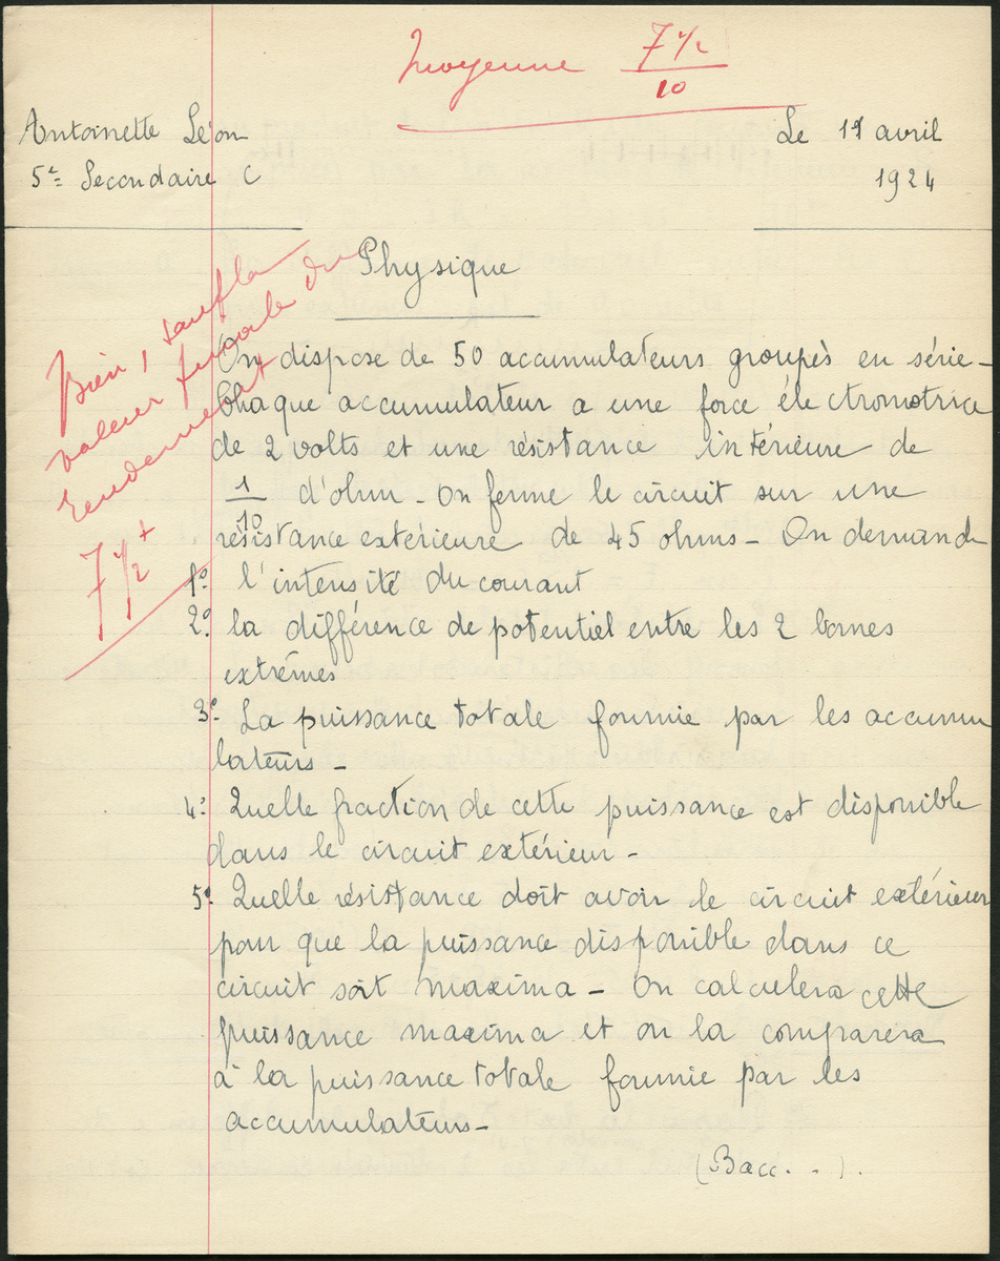 Moyenne 7 1/2
10
Antoinette Léon
Le 11 avril
5e Secondaire C
1924
Bien, sauf la
valeur finale du
rendement
7 1/2 +
Physique
On dispose de 50 accumulateurs groupès en série -
Chaque accumulateur a une force électromotrice
de 2 volts et une résistance intérieure de
1/10 d'ohm - On ferme le circuit sur une
résistance extérieure de 45 ohms - On demande
1º l'intensité du courant
2º la différence de potentiel entre les 2 bornes
extrêmes
3º La puissance totale fournie par les accumu
lateurs -
4º Quelle fraction de cette puissance est disponible
dans le circuit extérieur -
5º Quelle résistance doit avoir le circuit extérieur
pour que la puissance disponible dans ce
circuit soit maxima - On calculera cette
puissance maxima et on la comparera
à la puissance totale fournie par les
accumulateurs -
(Bacc. . ).